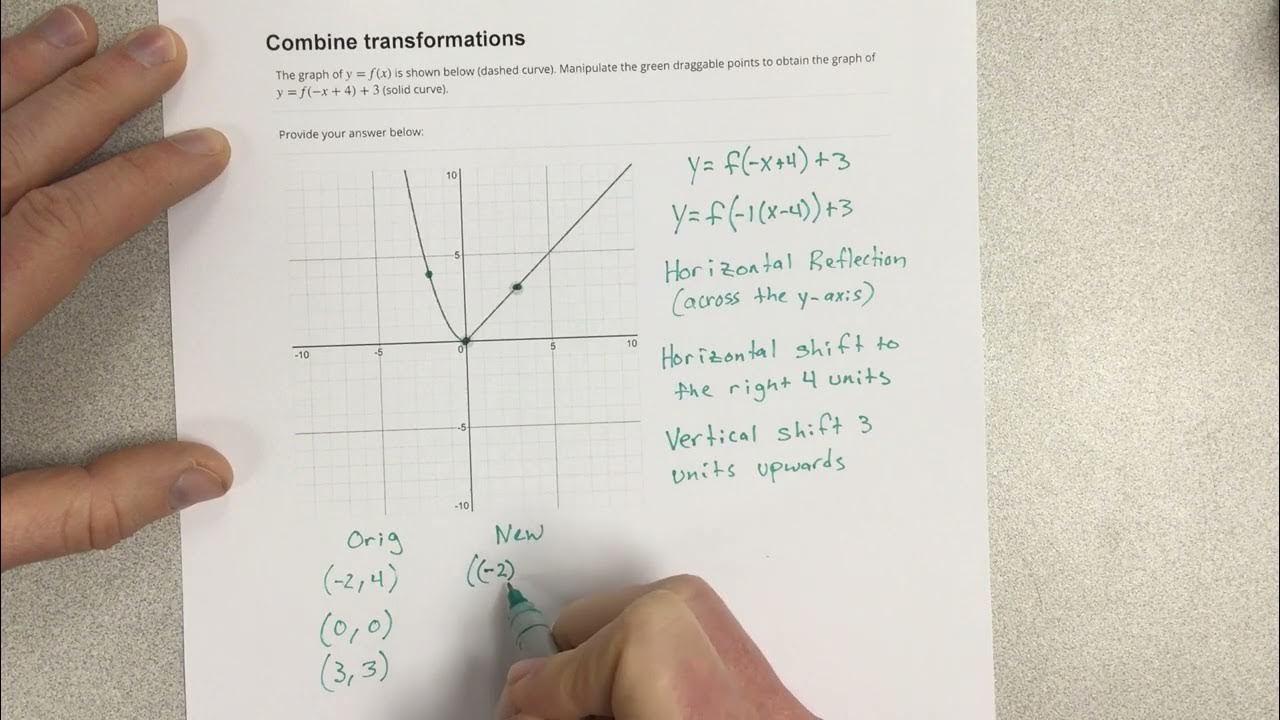 Combine transformations
The graph of y = f(x) is shown below (dashed curve). Manipulate the green draggable points to obtain the graph of
y = f(−x + 4) + 3 (solid curve).
Provide your answer below:
10
5
-10
-5
0
5
10
-5
-10
y = f(-x+4)+3
y = f(-1(x-4))+3
Horizontal Reflection
(across the y-axis)
Horizontal shift to
the right 4 units
Vertical shift 3
units upwards
Orig New
(-2,4) ((-2)
(0,0)
(3,3)